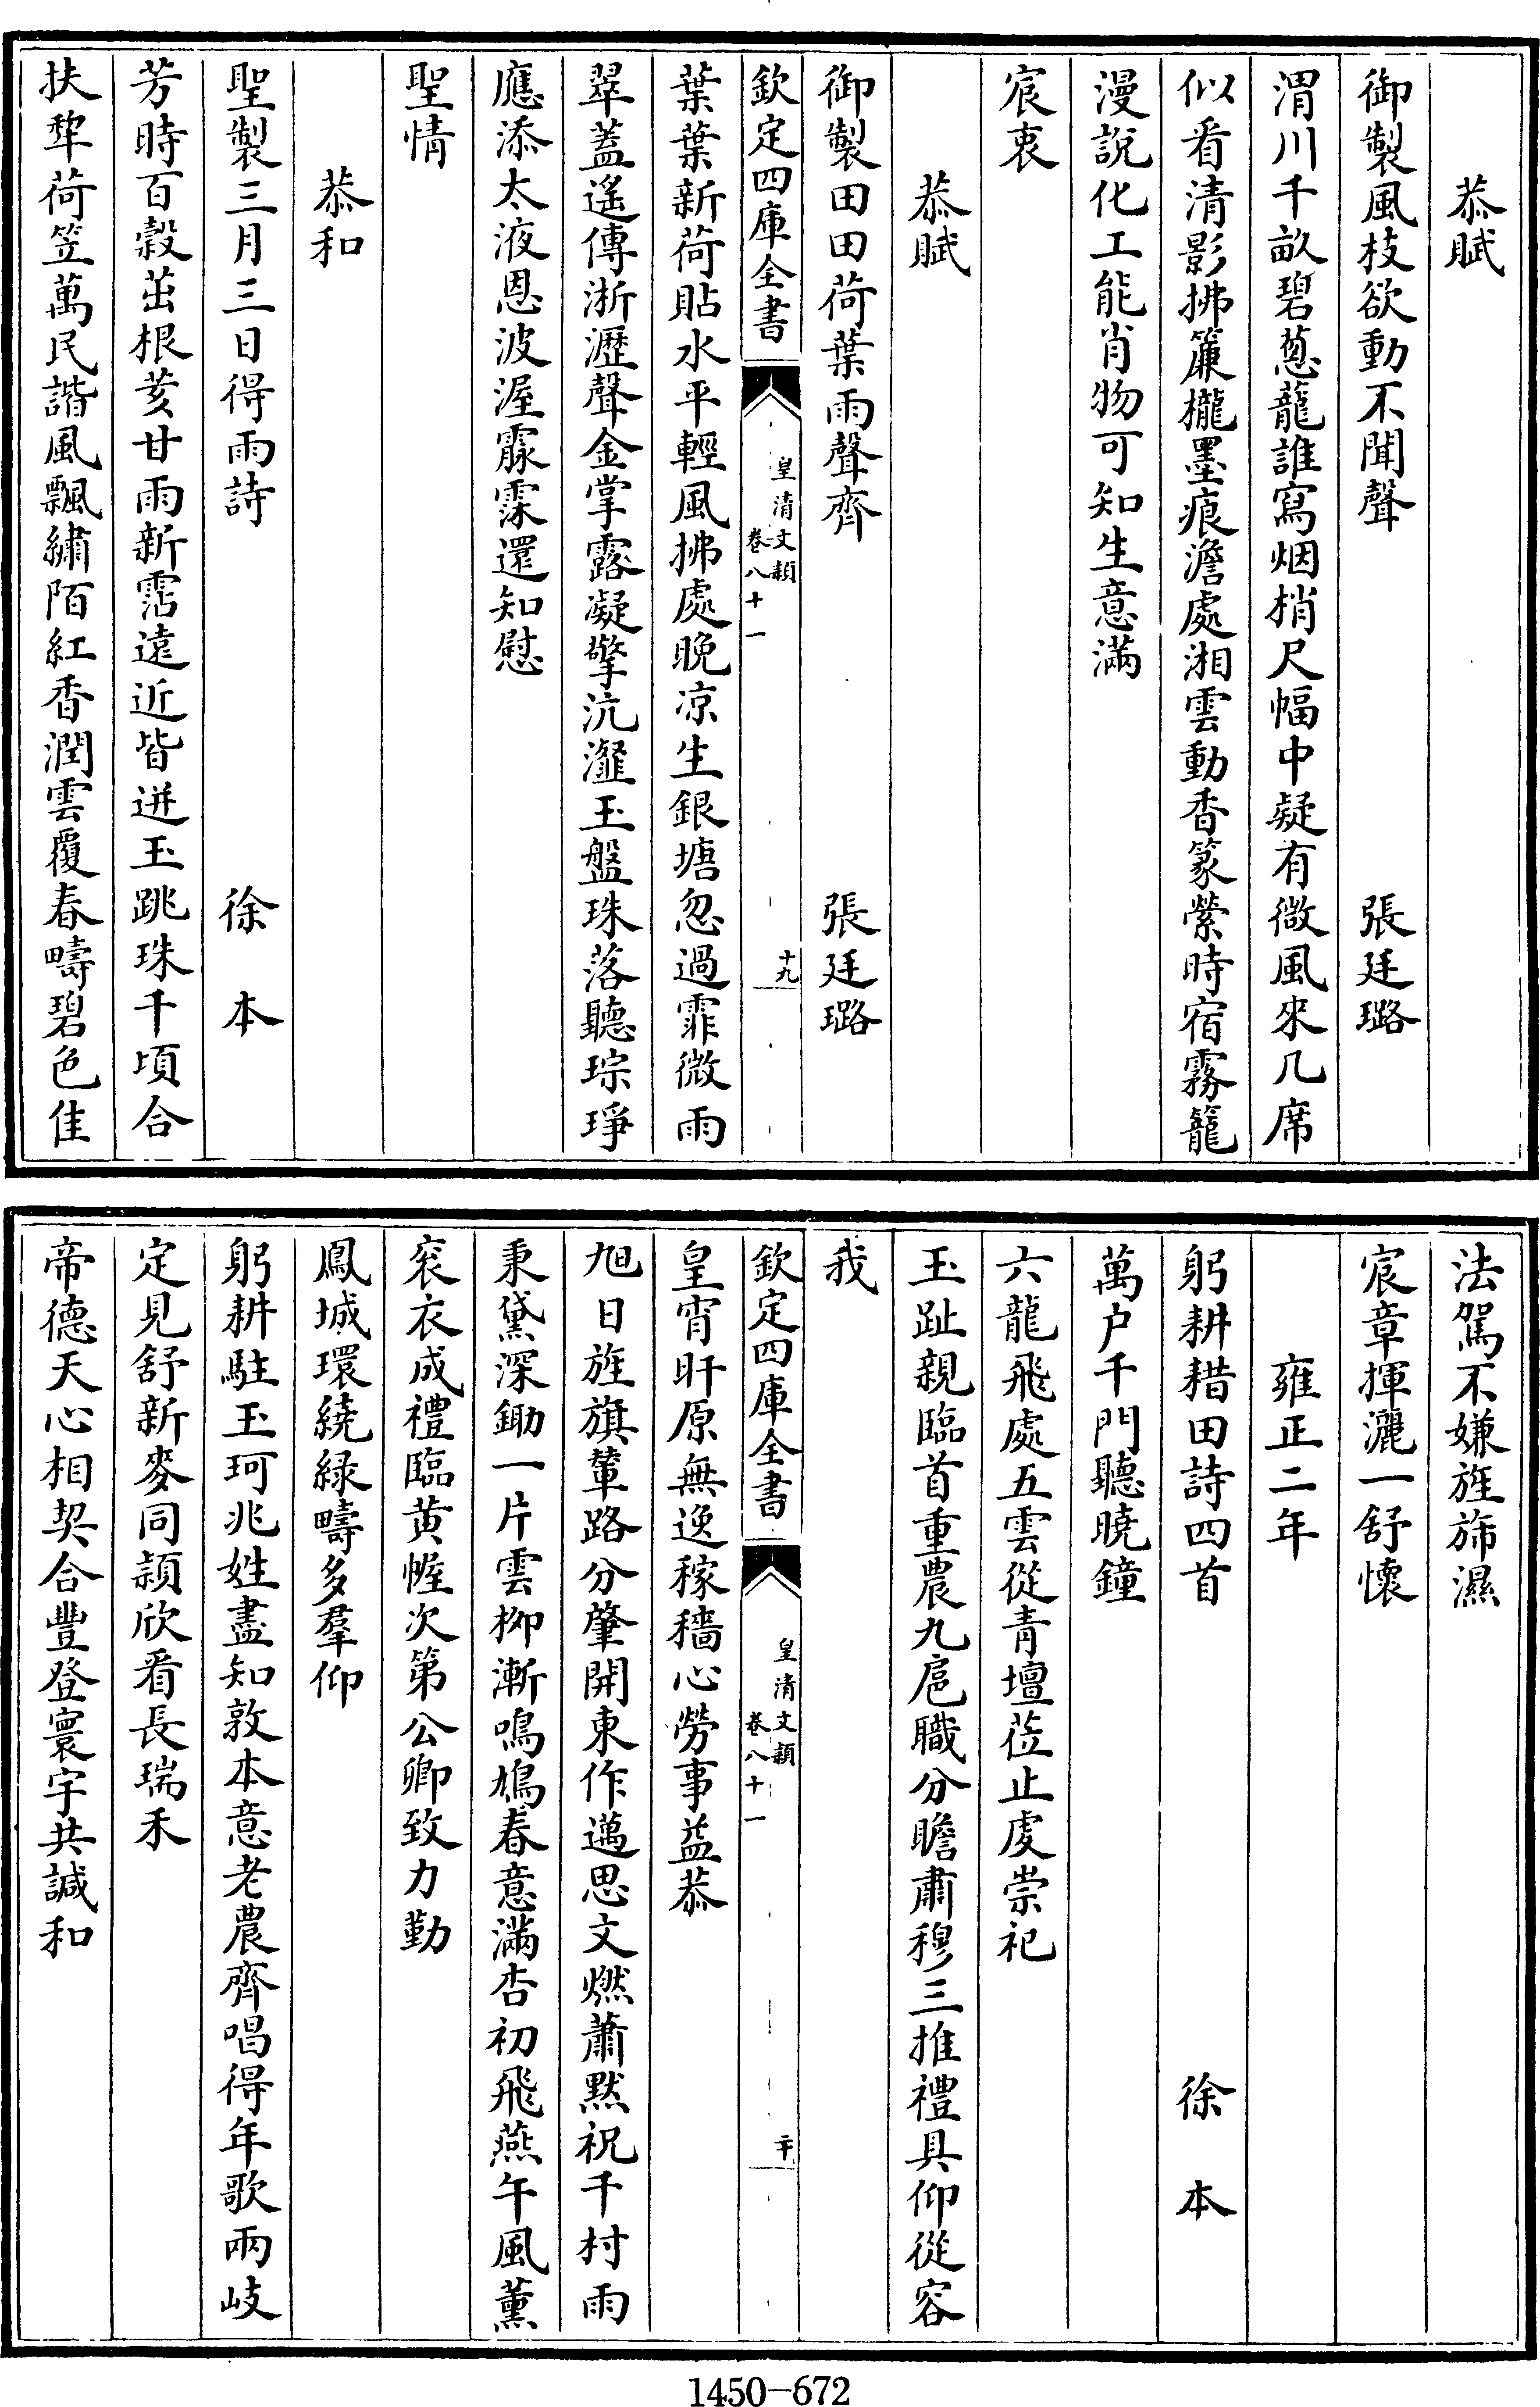 恭賦
御製風枝欲動不聞聲　張廷璐
渭川千畝碧葱蘢誰寫烟梢尺幅中疑有微風來几席
似看清影拂簾櫳墨痕澹處湘雲動香篆縈時宿霧籠
漫說化工能肖物可知生意滿
宸衷
恭賦
御製田田荷葉雨聲齊　張廷璐
欽定四庫全書
皇清文穎
卷八十一
十九
葉葉新荷貼水平輕風拂處晚凉生銀塘忽過霏微雨
翠蓋遙傳淅瀝聲金掌露凝擎沆瀣玉盤珠落聽琮琤
應添太液恩波渥霢霂還知慰
聖情
恭和
聖製三月三日得雨詩　徐　本
芳時百穀茁根荄甘雨新霑遠近皆迸玉跳珠千頃合
扶犂荷笠萬民諧風飄繡陌紅香潤雲覆春疇碧色佳
法駕不嫌旌斾濕
宸章揮灑一舒懷
雍正二年
躬耕耤田詩四首　徐　本
萬户千門聽曉鐘
六龍飛處五雲從青壇蒞止䖍崇祀
玉趾親臨首重農九扈職分瞻肅穆三推禮具仰從容
我
欽定四庫全書
皇清文穎
卷八十一
二十
皇宵旰原無逸稼穡心勞事益恭
旭日旌旗輦路分肇開東作邁思文燃蕭默祝千村雨
秉黛深鋤一片雲柳漸鳴鳩春意滿杏初飛燕午風薰
衮衣成禮臨黄幄次第公卿致力勤
鳳城環繞緑疇多羣仰
躬耕駐玉珂兆姓盡知敦本意老農齊唱得年歌兩岐
定見舒新麥同穎欣看長瑞禾
帝德天心相契合豐登寰宇共諴和
1450-672